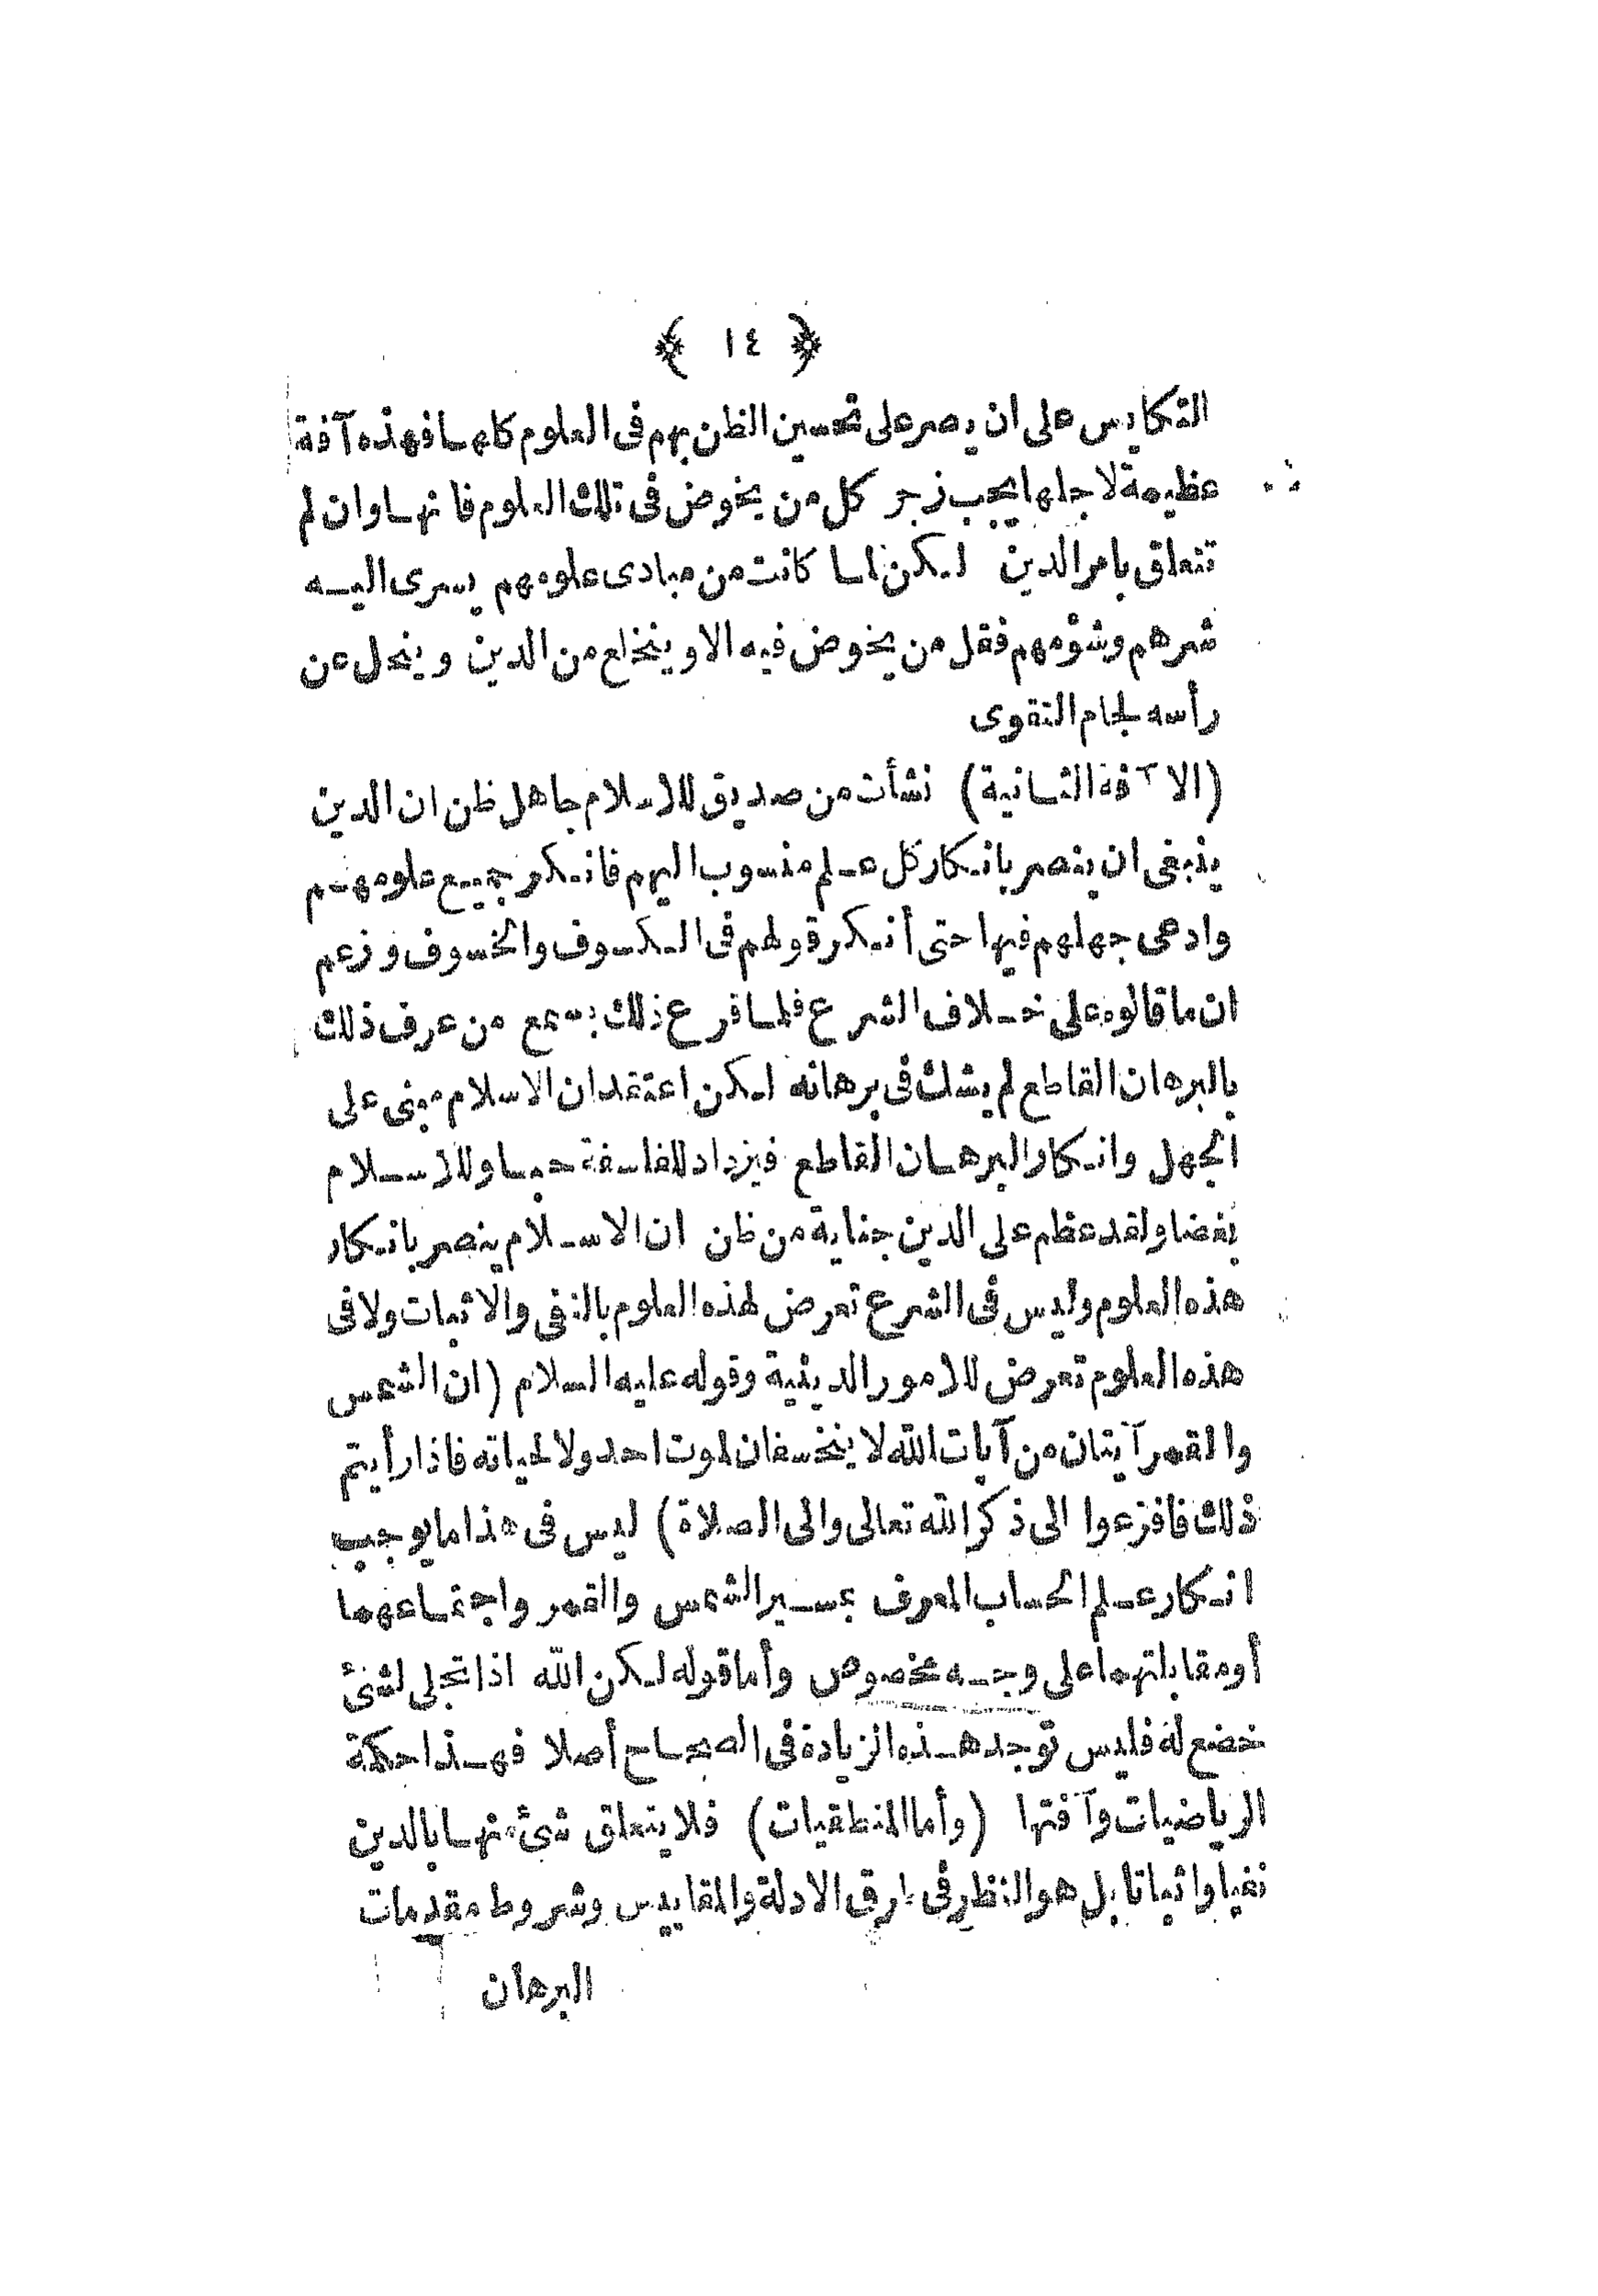 ﴿ ١٤ ﴾
التكايس على ان يصر على تحسين الظن بهم فى العلوم كلها فهذه آفة
عظيمة لاجلها يجب زجر كل من يخوض فى تلك العلوم فانها وان لم
تتعلق بامر الدين لكن لما كانت من مبادى علومهم يسرى اليه
شرهم وشؤمهم فقل من يخوض فيه الا وينخلع من الدين وينحل عن
رأسه لجام التقوى
(الآفة الثانية) نشأت من صديق للاسلام جاهل ظن ان الدين
ينبغى ان ينصر بانكار كل علم منسوب اليهم فانكر جميع علومهم
وادعى جهلهم فيها حتى أنكر قولهم فى الكسوف والخسوف وزعم
ان ما قالوه على خلاف الشرع فلما قرع ذلك بسمع من عرف ذلك
بالبرهان القاطع لم يشك فى برهانه لكن اعتقد ان الاسلام مبنى على
الجهل وانكار البرهان القاطع فيزداد للفلسفة حبا وللاسلام
بغضا ولقد عظم على الدين جناية من ظن ان الاسلام ينصر بانكار
هذه العلوم وليس فى الشرع تعرض لهذه العلوم بالنفى والاثبات ولا فى
هذه العلوم تعرض للامور الدينية وقوله عليه السلام (ان الشمس
والقمر آيتان من آيات الله لا ينخسفان لموت احد ولا لحياته فاذا رأيتم
ذلك فافزعوا الى ذكر الله تعالى والى الصلاة) ليس فى هذا ما يوجب
انكار علم الحساب المعرف بمسير الشمس والقمر واجتماعهما
أو مقابلتهما على وجه مخصوص وأما قوله لكن الله اذا تجلى لشئ
خضع له فليس توجد هذه الزيادة فى الصحاح أصلا فهذا حكمة
الرياضيات وآفتها (وأما المنطقيات) فلا يتعلق شئ منها بالدين
نفيا واثباتا بل هو النظر فى طرق الادلة والمقاييس وشروط مقدمات
البرهان